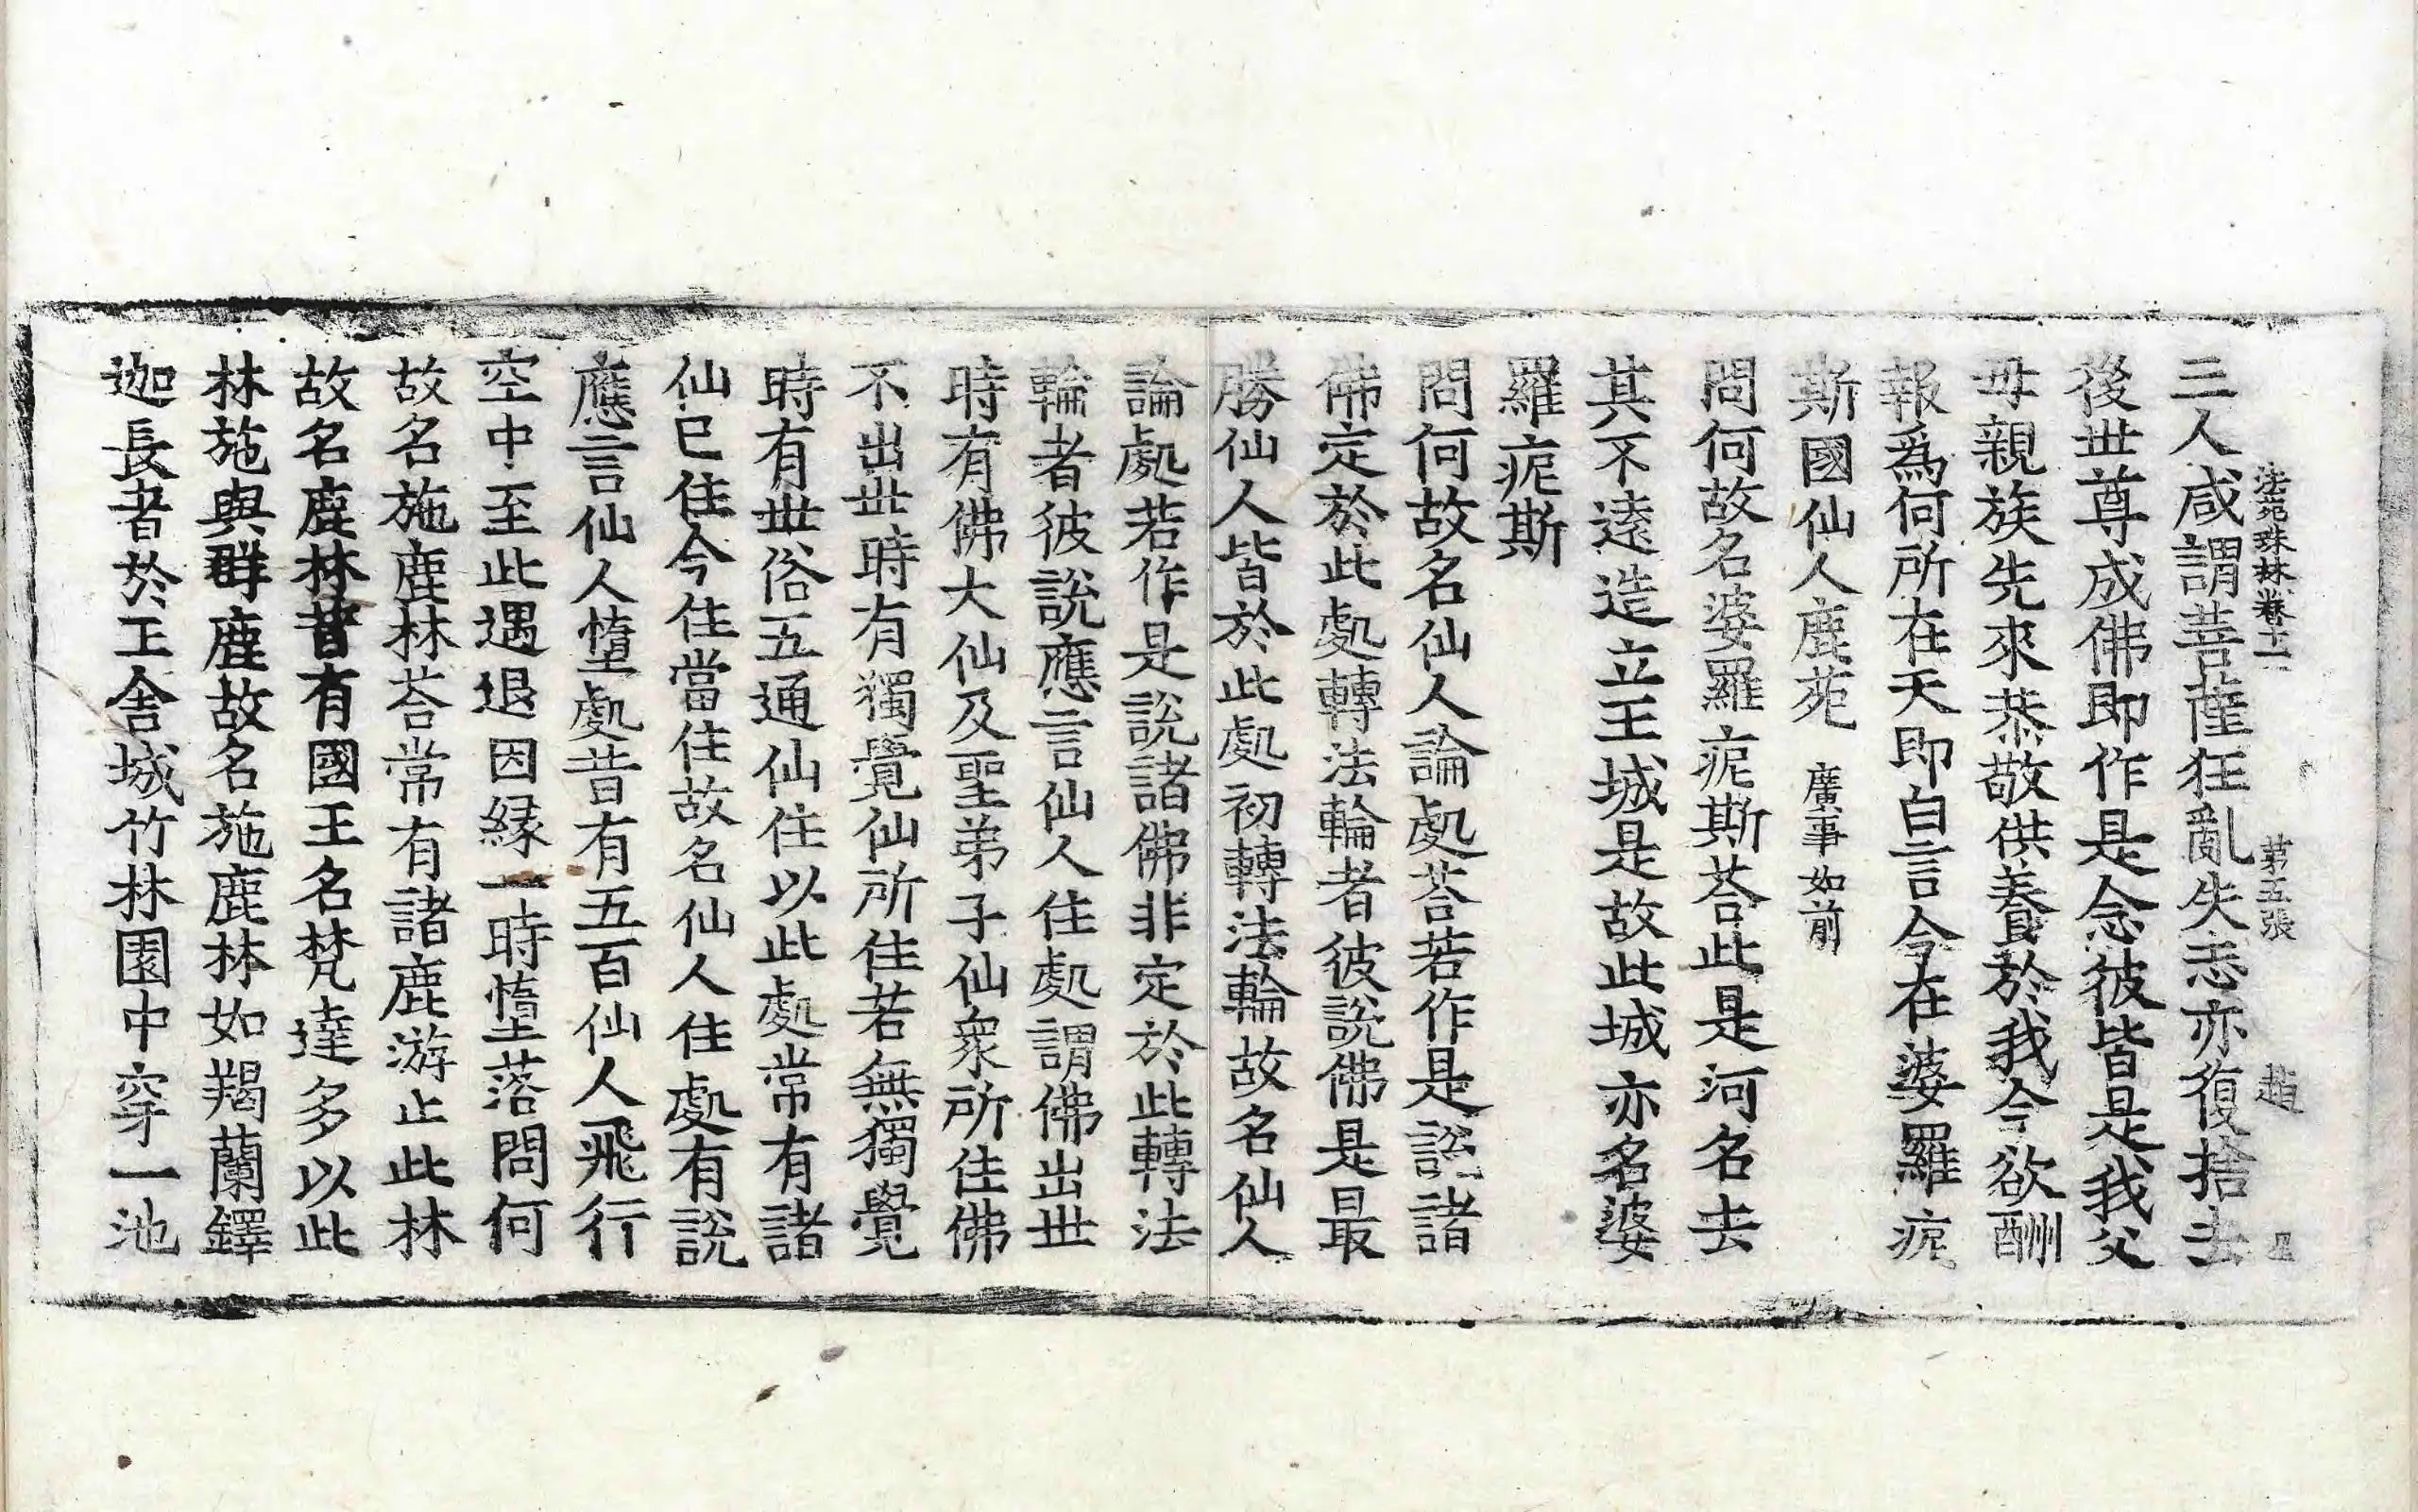 法苑珠林卷十二 第五張 趙
三人咸謂菩薩狂亂失志亦復捨去
後世尊成佛即作是念彼皆是我父
母親族先來恭敬供養於我今欲酬
報爲何所在天即白言今在婆羅痆
斯國仙人鹿苑 廣事如前
問何故名婆羅痆斯荅此是河名去
其不遠造立王城是故此城亦名婆
羅痆斯
問何故名仙人論處荅若作是說諸
佛定於此處轉法輪者彼說佛是最
勝仙人皆於此處初轉法輪故名仙人
論處若作是說諸佛非定於此轉法
輪者彼說應言仙人住處謂佛出世
時有佛大仙及聖弟子仙衆所住佛
不出世時有獨覺仙所住若無獨覺
時有世俗五通仙住以此處常有諸
仙已住今住當住故名仙人住處有說
應言仙人墮處昔有五百仙人飛行
空中至此遇退因緣一時墮落問何
故名施鹿林荅常有諸鹿游止此林
故名鹿林昔有國王名梵達多以此
林施與群鹿故名施鹿林如羯蘭鐸
迦長者於王舍城竹林園中穿一池